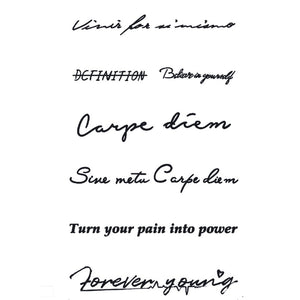 Vivir por si mismo
DEFINITION Believe in yourself
Carpe diem
Sine metu Carpe diem
Turn your pain into power
Forever young